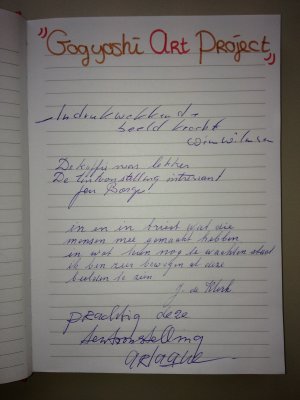 "Gogyoshi Art Project"
Indrukwekkend -
beeld kracht
Wim
De koffie was lekker
De tentoonstelling intresant
Jan
en en in triest wat die
mensen mee gemaakt hebben
en wat hun nog te wachten staat
ik ben zeer bewogen al deze
beelden te zien
J. de Klerk
prachtig deze
tentoonstelling